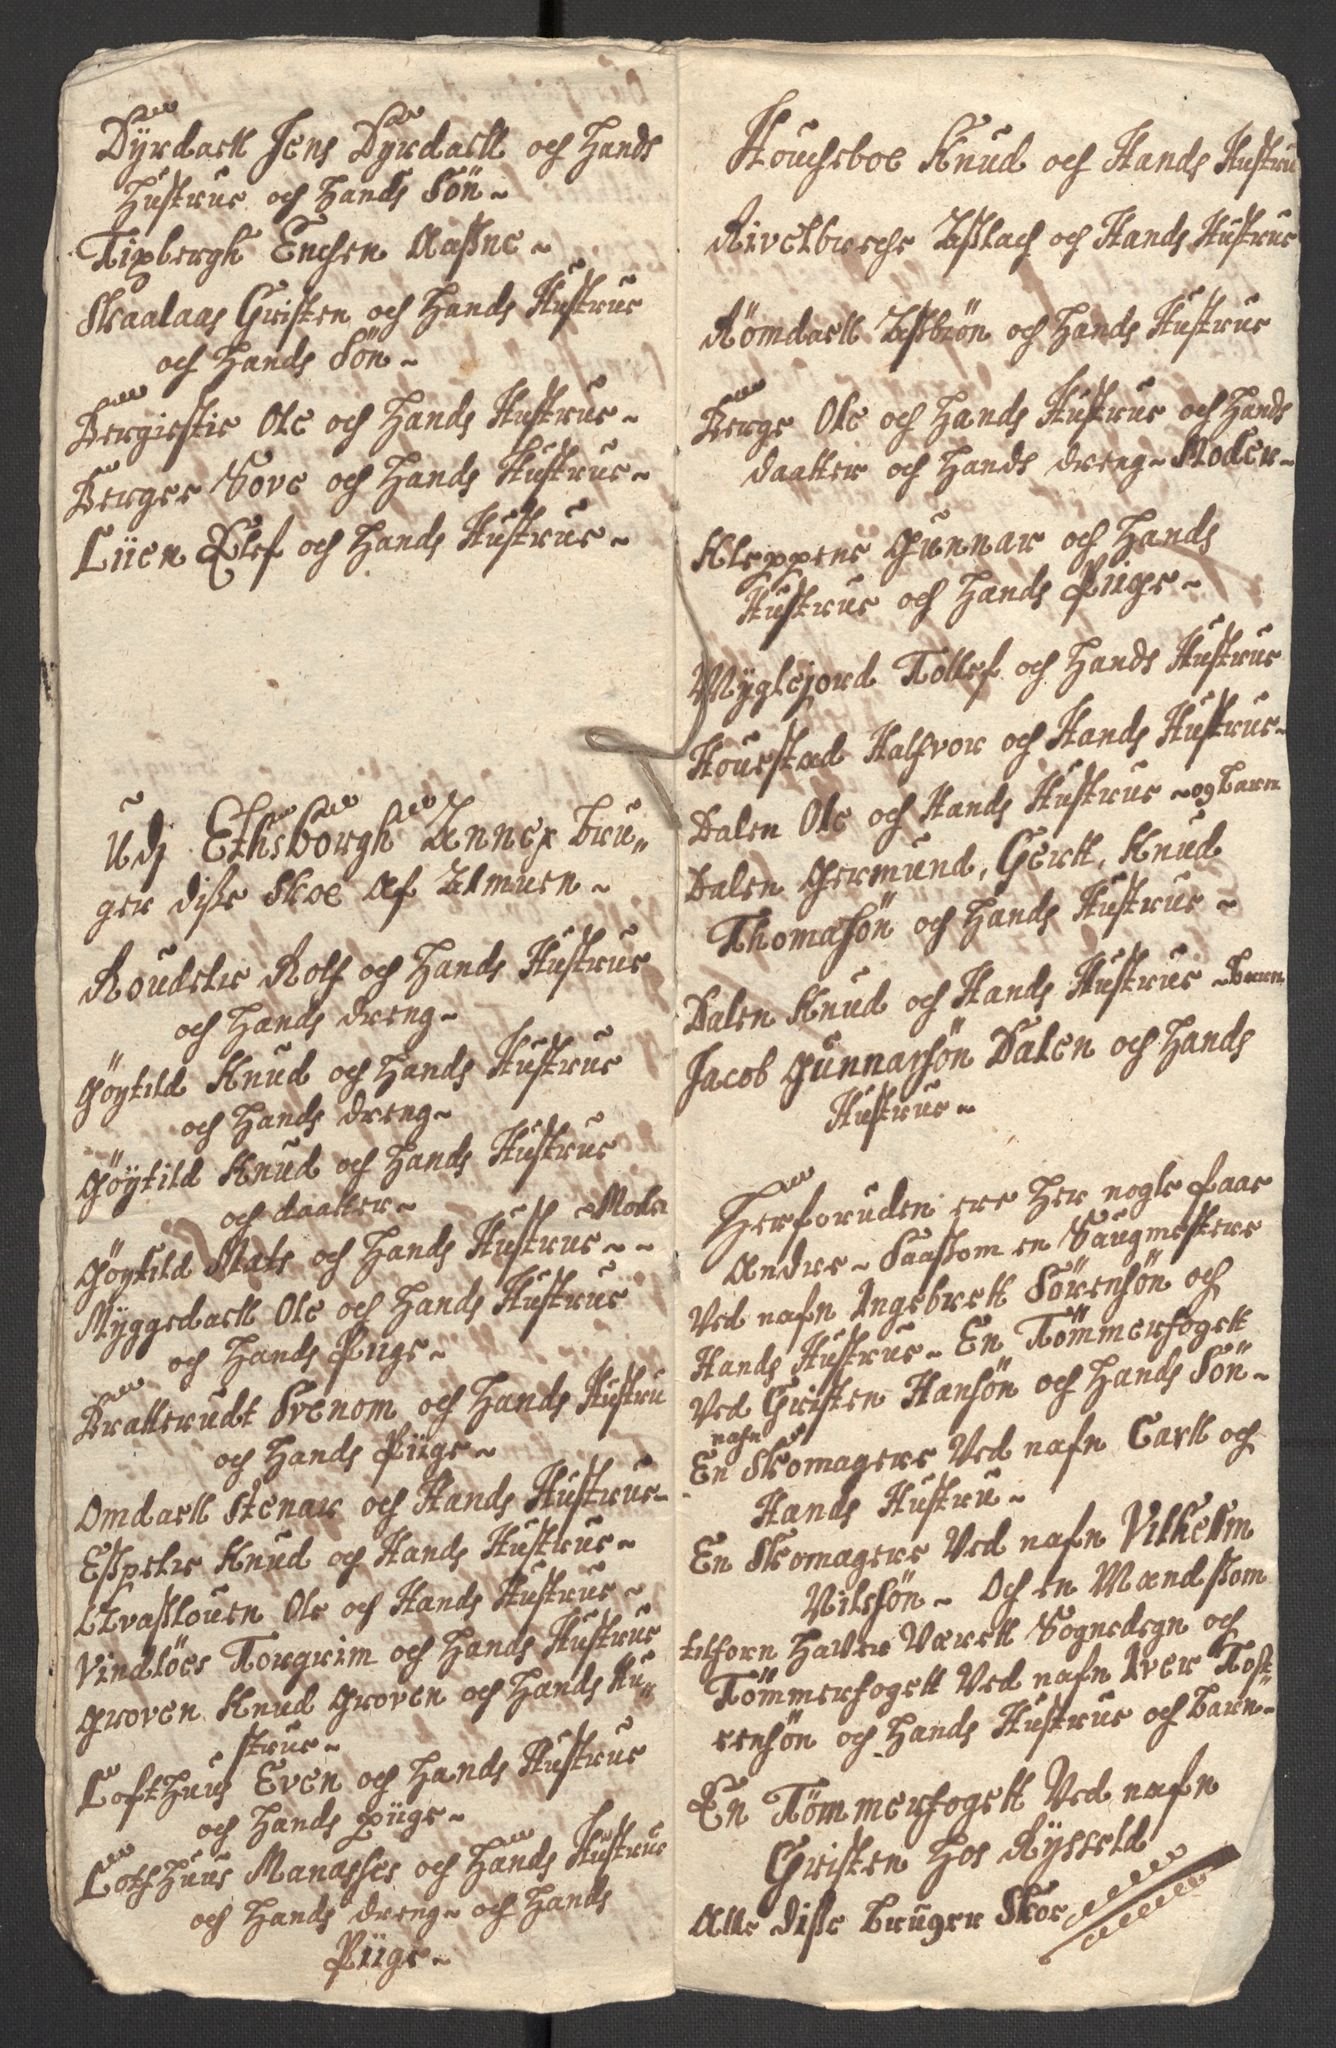 Dÿrdaell Jens Dÿrdaell och hands
hustrue och hands Sön~
Tixbergh Enchen Aaßne~
Skaalaas Christen och hands Hustrue
och hands Sön~
Bergiestie Ole och hands Hustrue~
Berger Tove och hands Hustrue~
Liien Elef och hands Hustrue~
Udj Ethsborgh Annex bru„
ger disse Skoe Af Almuen~
Roudelie Rolf och hands Hustrue
och hands dreng~
Göytild Knud och hands Hustrue
och hands dreng~
Göytild Knud och hands Hustrue
och daatter~
Göytild Mats och hands Hustrue~~ ~Moder
Myggedaell Ole och hands Hustrue
och hands Piige~
Bratterudt Svenom och hands Hustru
och hands Piige~
Omdaell Stenar och Hands Hustrue~
Esspelie Knud och Hands Hustrue~
Ole och Hands Hustrue~
Vindlöes Torgrim och hands Hustrue
Groven Knud Groven och hands Hu„
strue~
Lofthuus Even och hands Hustrue
och hands piige~
Lofthuus Manasses och hands Hustrue
och hands dreng~ och hands
Piige~
Houcheboe Knud och Hands Hustru
Aslach och Hands Hustrue
Römdaell Asbiön och hands Hustrue
Berge Ole och hands Hustrue och hands
daatter och hands dreng~ Moder~
Kleppene Gunnar och hands
Hustrue och hands Piige~
Myglejord Tollef och hands Hustrue
Houestad Halfvor och Hands Hustrue~
Dalen Ole och Hands Hustrue ~og barn
Dalen Germund, Gertt, Knud
Thomasön och hands Hustrue~
Dalen Knud och Hands Hustrue ~barn
Jacob Gunnarsön Dalen och hands
Hustrue~
Herforuden ere her nogle faae
Andre~ Saassom en Saugmestere
Ved nafn Ingebrett Sörensön och
Hands Hustrue~ En Tömmerfogett
Ved Christen Hansön och hands Sön~
nafn
En Skomagere Ved nafn Carll och
Hands Hustru~
En Skomagere Ved nafn Vilhelm
Nilsön~ Och en Mand ssom
tilforn haver Værett Sognedegn och
Tömmerfogett Ved nafn Iver Tost
ensön och hands Hustrue och barn~
En Tömmerfogett Ved nafn
Christen hos Rysseld
Alle disse bruger Skoe